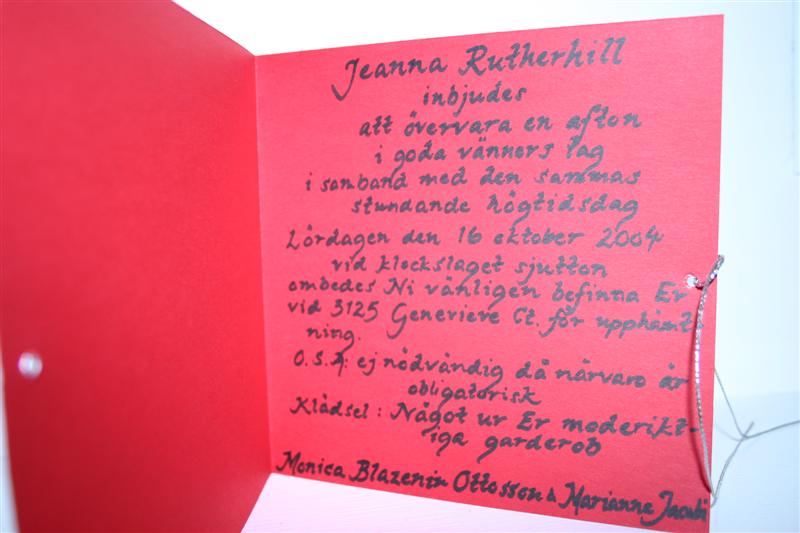 Jeanna Rutherhill
inbjudes
att övervara en afton
i goda vänners lag
i samband med den sammas
stundande högtidsdag
Lördagen den 16 oktober 2004
vid klockslaget sjutton
ombedes Ni vänligen befinna Er
vid 3125 Genevieve Ct. för upphämt-
ning.
O.S.A: ej nödvändig då närvaro är
obligatorisk
Klädsel: Något ur Er moderikt-
iga garderob
Monica Blazenin Ottosson & Marianne Jacobi